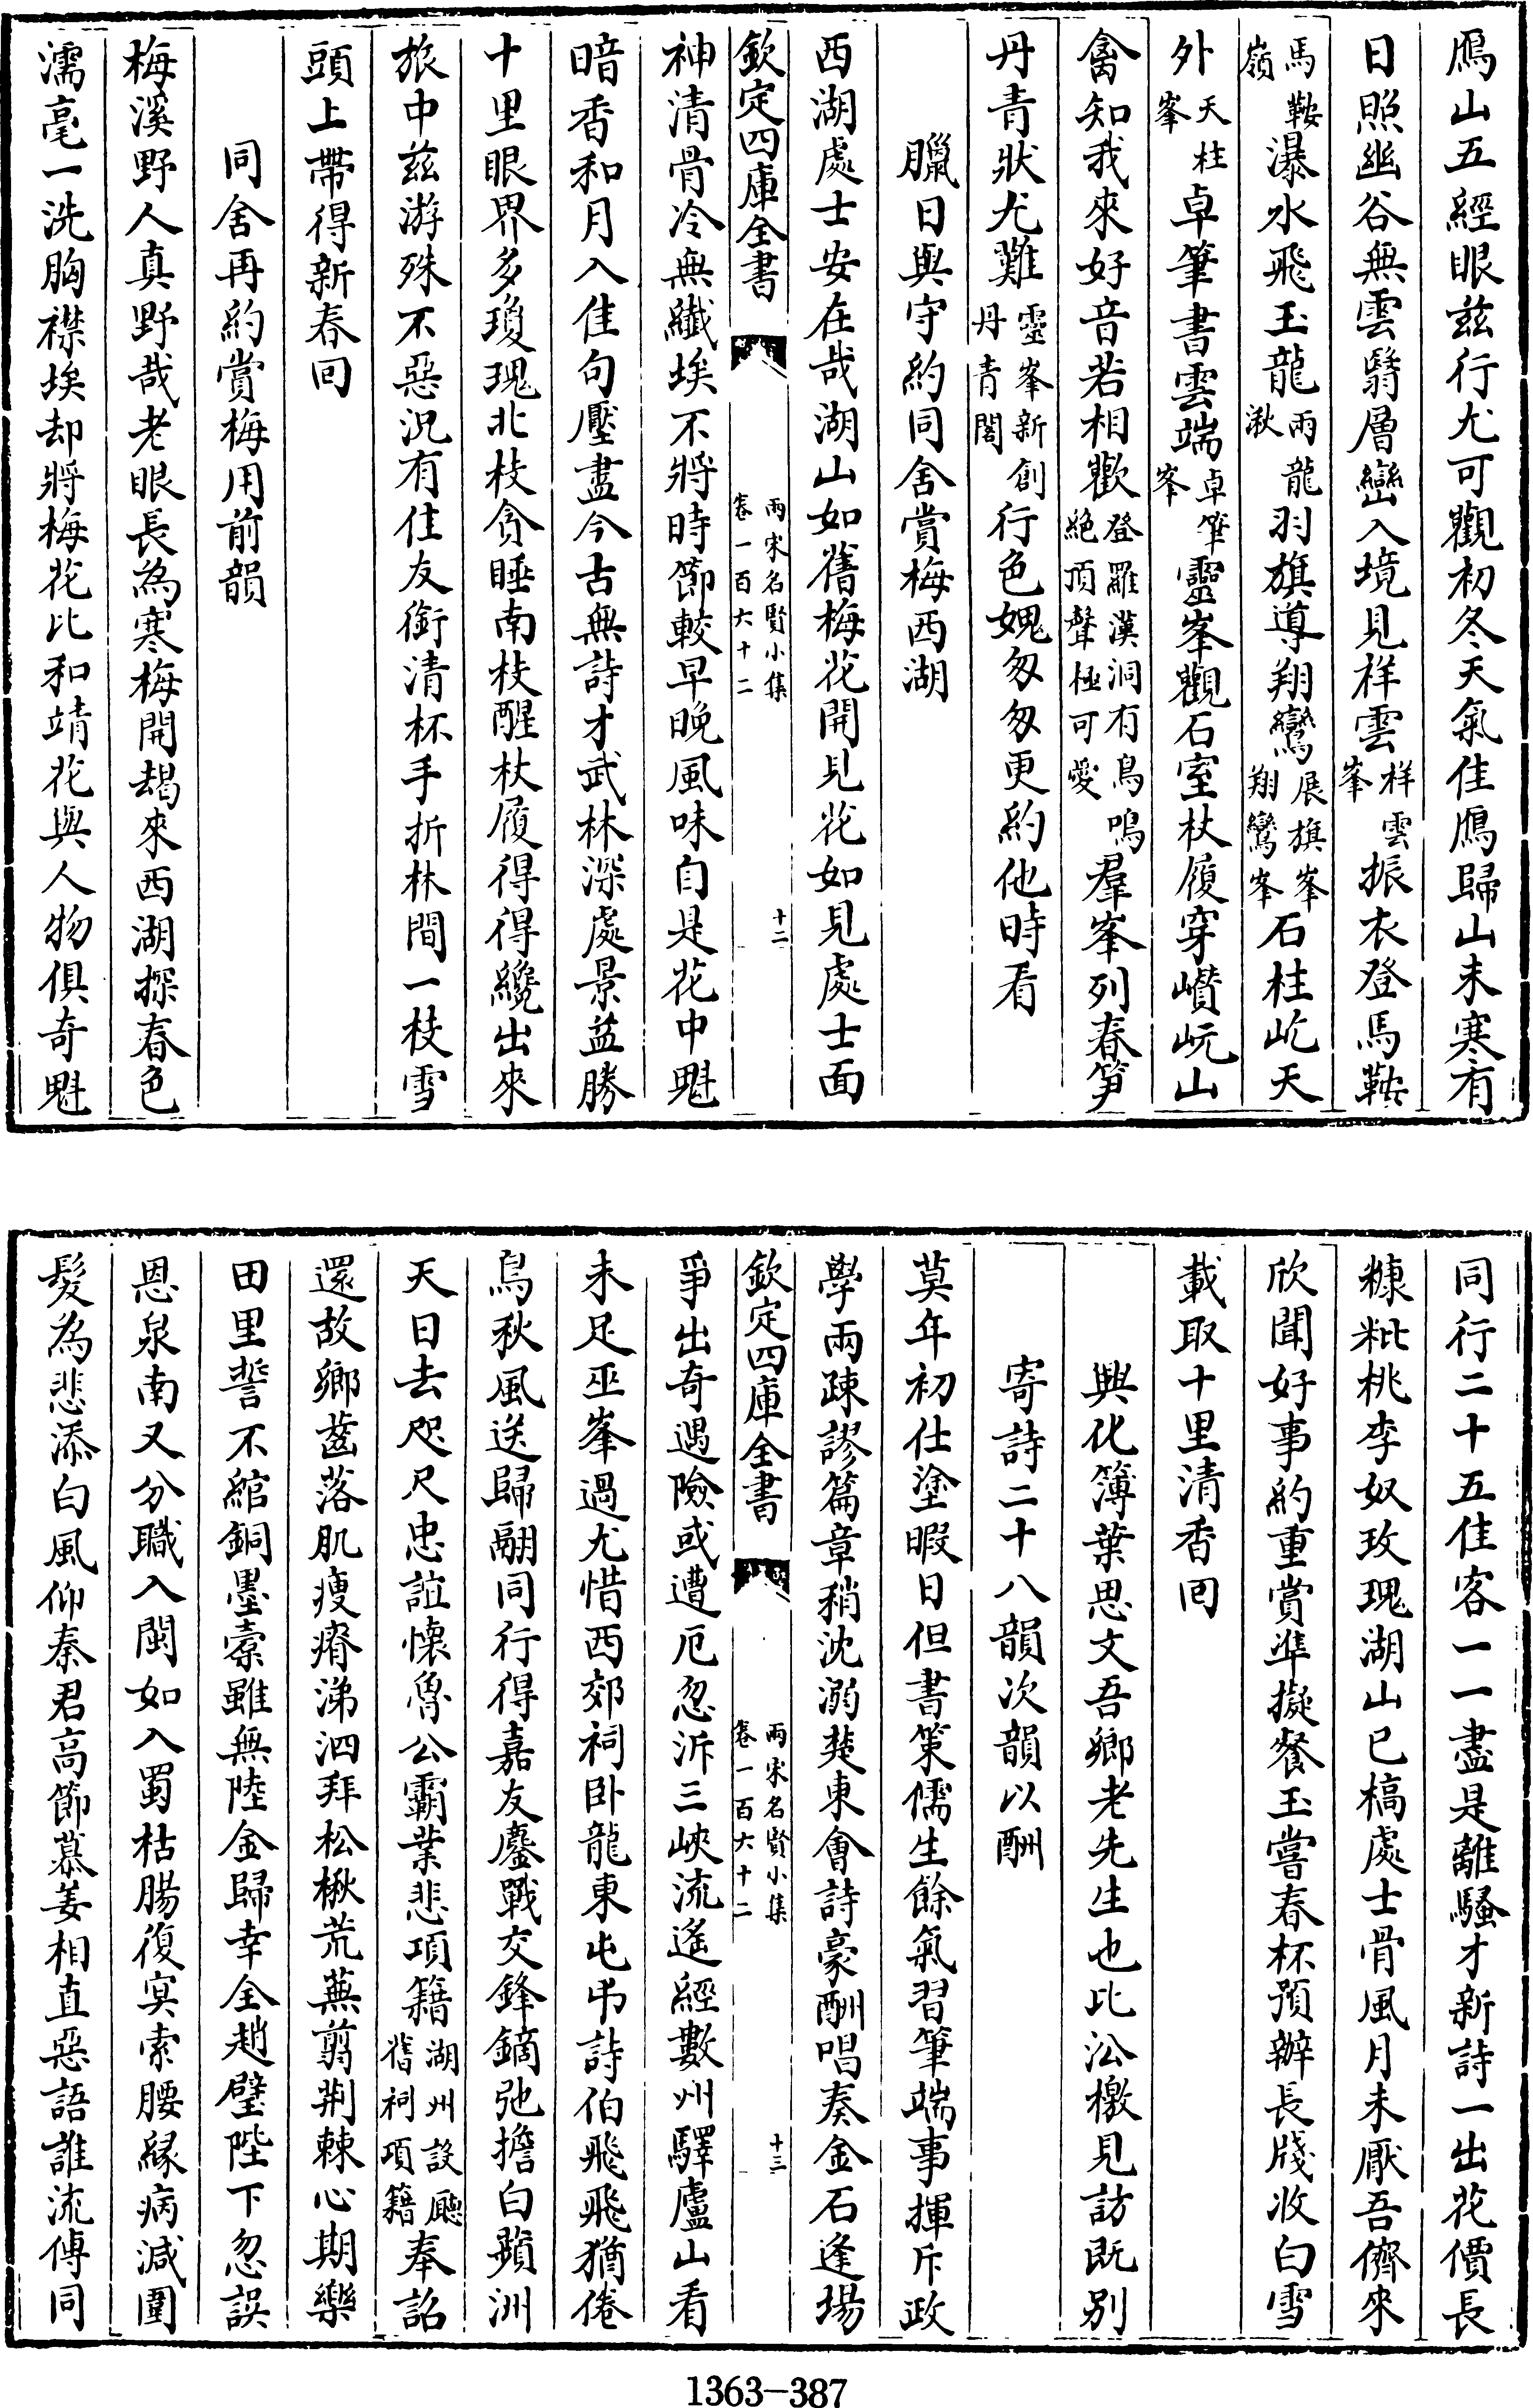 鴈山五經眼兹行尤可觀初冬天氣佳鴈歸山未寒有
日照幽谷無雲翳層巒入境見祥雲祥雲峯振衣登馬鞍
馬鞍嶺瀑水飛玉龍兩龍湫羽旗導翔鸞展旗峯翔鸞峯石柱屹天
外天柱峯卓筆書雲端卓筆峯靈峯觀石室杖履穿巑岏山
禽知我來好音若相歡登羅漢洞有鳥鳴絶頂聲極可愛羣峯列春笋
丹青狀尤難靈峯新創丹青閣行色媿匆匆更約他時看
臘日與守約同舍賞梅西湖
西湖處士安在哉湖山如舊梅花開見花如見處士面
欽定四庫全書
兩宋名賢小集
卷一百六十二
十二
神清骨冷無纖埃不將時節較早晚風味自是花中魁
暗香和月入佳句壓盡今古無詩才武林深處景益勝
十里眼界多瓊瑰北枝貪睡南枝醒杖履得得纔出來
旅中兹游殊不惡況有佳友銜清杯手折林間一枝雪
頭上帶得新春回
同舍再約賞梅用前韻
梅溪野人真野哉老眼長為寒梅開朅來西湖探春色
濡毫一洗胸襟埃却將梅花比和靖花與人物俱奇魁
同行二十五佳客一一盡是離騷才新詩一出花價長
糠粃桃李奴玫瑰湖山已槁處士骨風月未厭吾儕來
欣聞好事約重賞準擬餐玉嘗春杯預辦長牋收白雪
載取十里清香回
興化簿葉思文吾鄉老先生也比㳂檄見訪既别
寄詩二十八韻次韻以酬
莫年初仕塗暇日但書策儒生餘氣習筆端事揮斥政
學兩疎謬篇章稍沈溺楚東會詩豪酬唱奏金石逢場
欽定四庫全書
兩宋名賢小集
卷一百六十二
十三
爭出奇遇險或遭厄忽泝三峽流遙經數州驛廬山看
未足巫峯過尤惜西郊祠卧龍東屯弔詩伯飛飛猶倦
鳥秋風送歸翮同行得嘉友鏖戰交鋒鏑弛擔白蘋洲
天日去咫尺忠誼懷魯公霸業悲項籍湖州設廳舊祠項籍奉詔
還故鄉齒落肌瘦瘠涕泗拜松楸荒蕪翦荆棘心期樂
田里誓不綰銅墨橐雖無陸金歸幸全趙璧陛下忽誤
恩泉南又分職入閩如入蜀枯腸復冥索腰緣病減圍
髮為悲添白風仰秦君高節慕姜相直惡語誰流傳同
1363-387